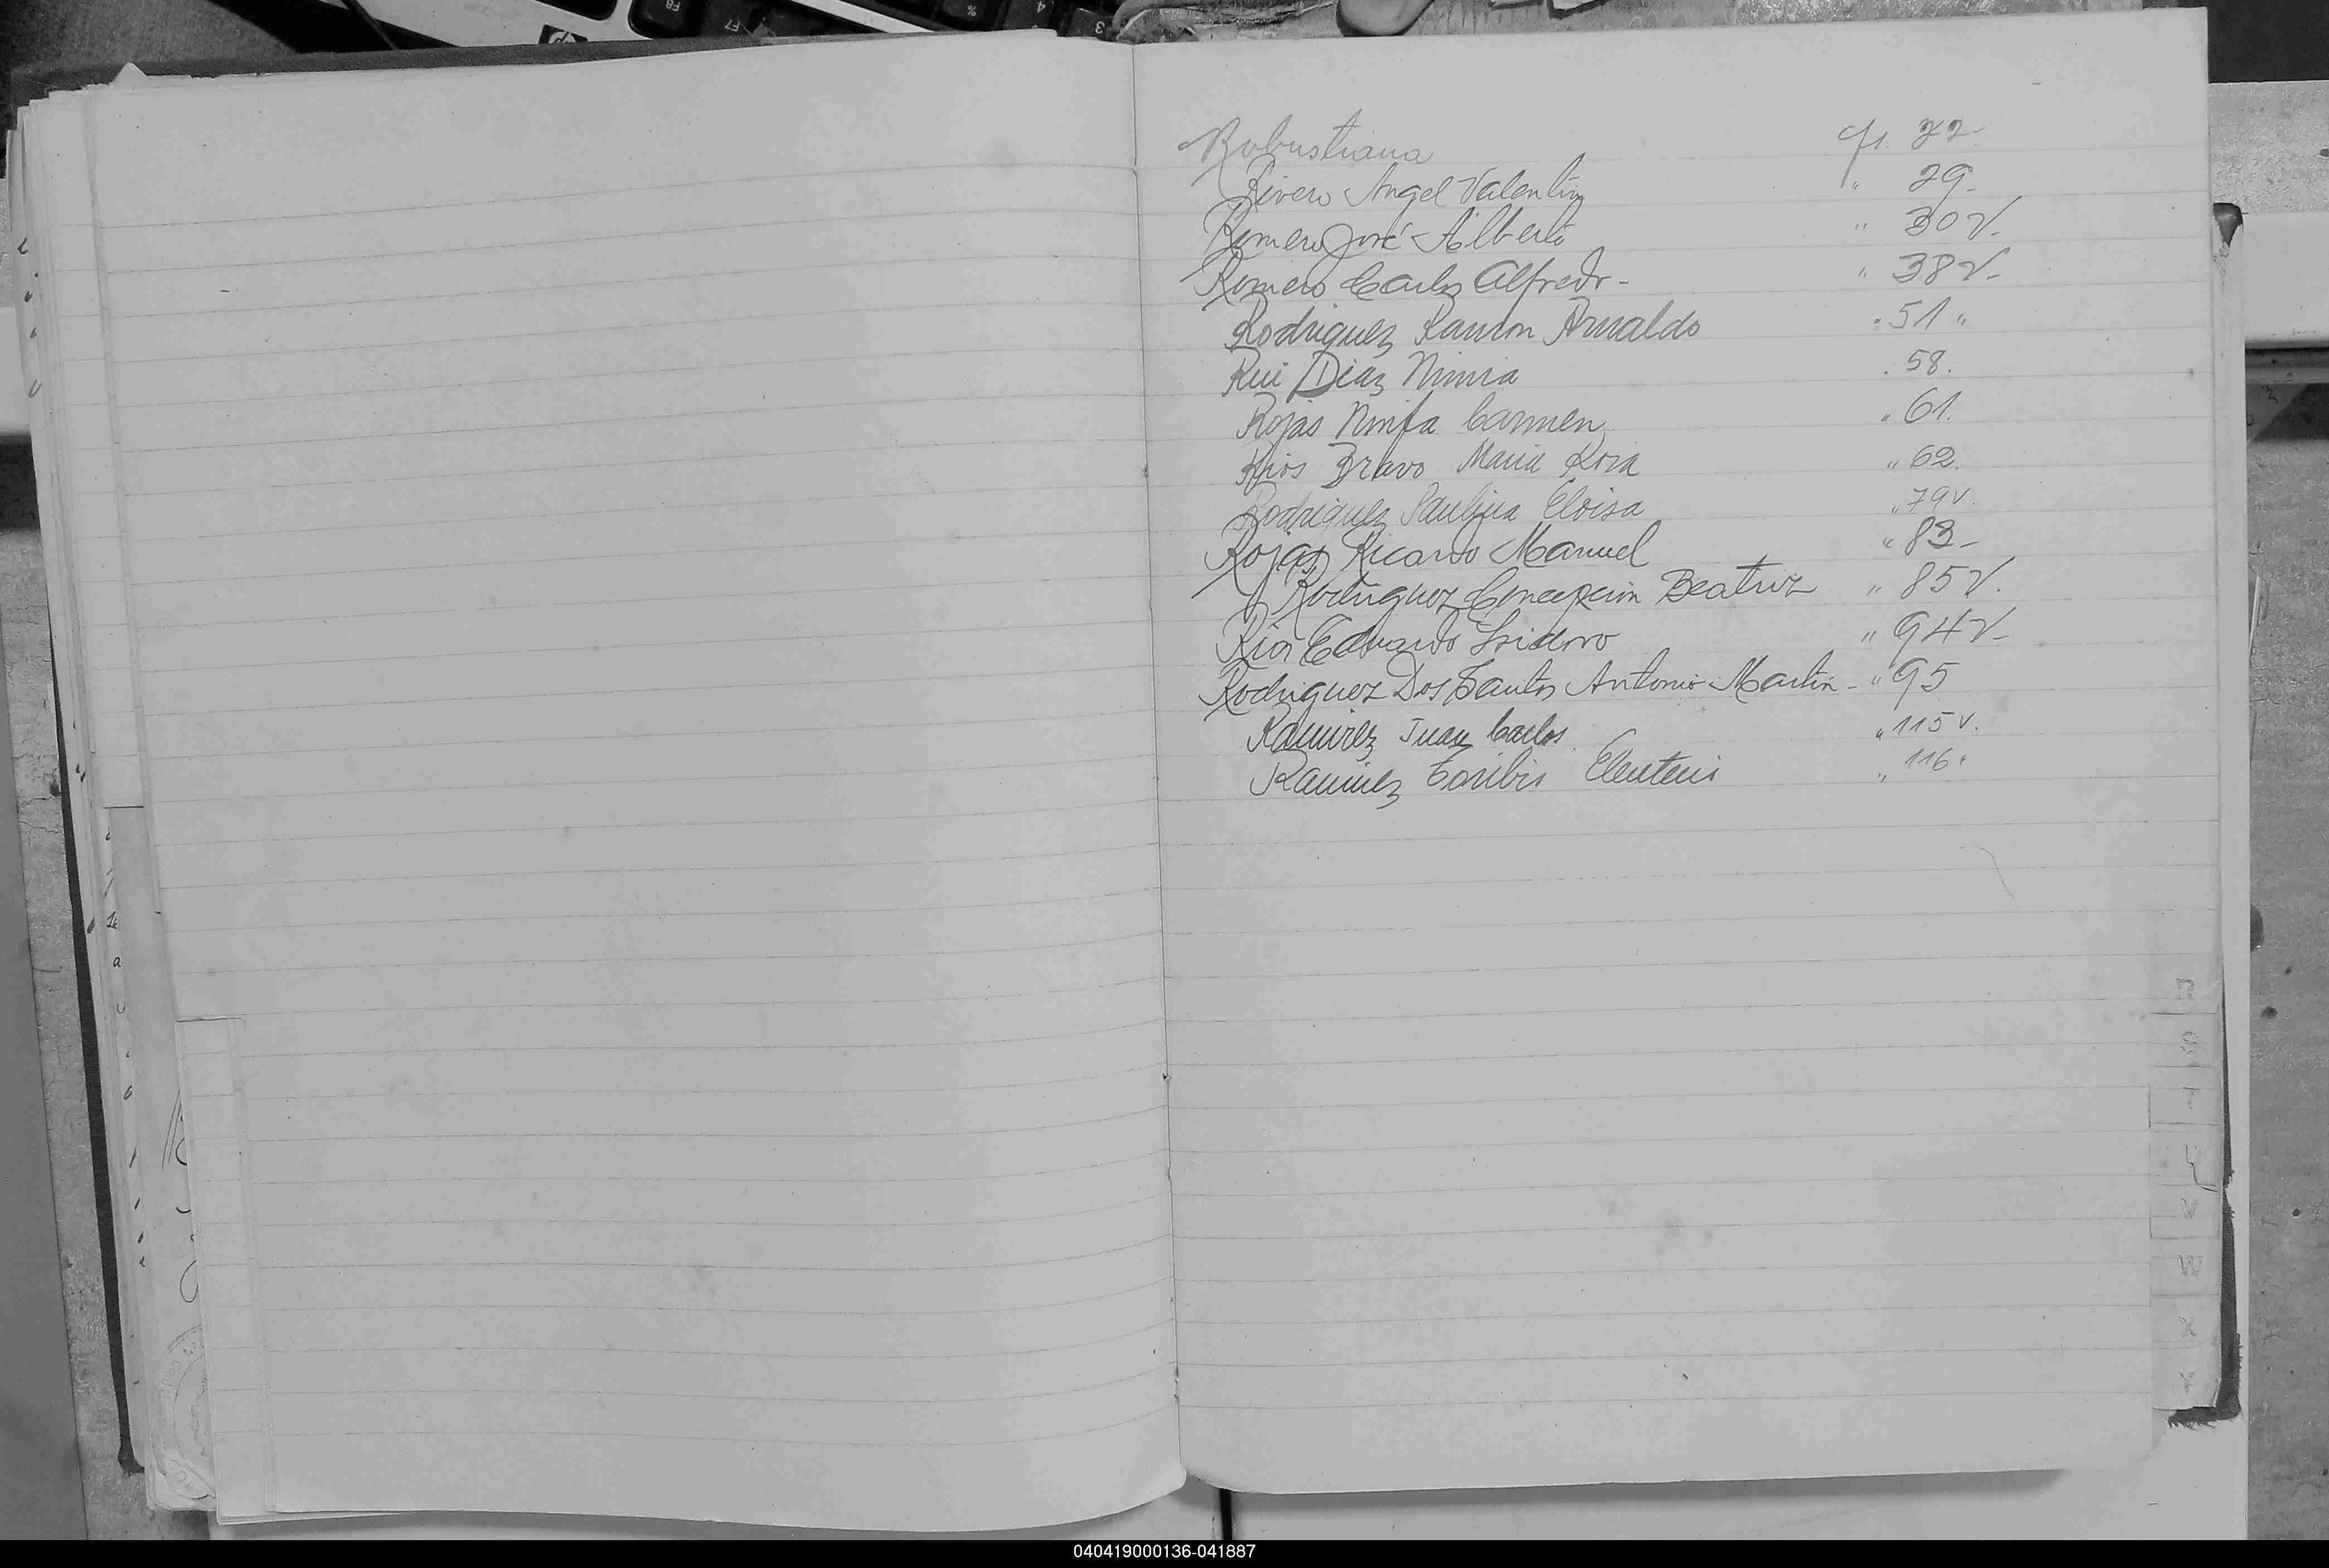 Robustiana fs. 22-
Rivero Angel Valentin " 29-
Romero José Alberto " 30 v.
Romero Carlos Alfredo - " 38 v-
Rodriguez Ramon Arnaldo " 51 "
Rui Diaz Nimia . 58.
Rojas Ninfa Carmen " 61.
Rios Bravo Maria Rosa " 62.
Rodriguez Paulina Eloisa " 79 v.
Rojas Ricardo Manuel " 83-
Rodriguez Concepcion Beatriz " 85 v.
Rios Eduardo Isidoro " 94 v-
Rodriguez Dos Santos Antonio Martin - " 95
Ramirez Juan Carlos. " 115 v.
Ramirez Toribio Eleuterio " 116 "
R
S
T
U
V
W
X
Y
040419000136-041887